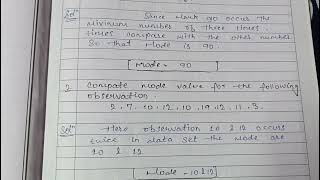 Sol" Since Mark 90 occurs the
Minimum number of three times
times compare with the other number
So that Mode is 90.
[ Mode = 90 ]
2. Compute mode value for the following
observation.
2, 7, 10, 12, 10, 19, 12, 11, 3.
Sol" Here observation 10 & 12 occurs
twice in data set the Mode are
10 & 12
[ Mode = 10 & 12 ]